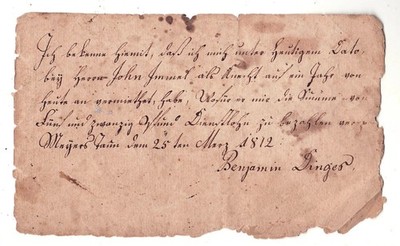 Ich bekenne hiemit, daß ich mich unter heutigem Dato
bey Herrn John Immel als Knecht auf ein Jahr von
heute an vermiethet habe, Wofür er mir die Summe von
Fünf und zwanzig Pfund Dienstlohn zu bezahlen
Meyers Taun dem 25ten Merz 1812
Benjamin Dinges